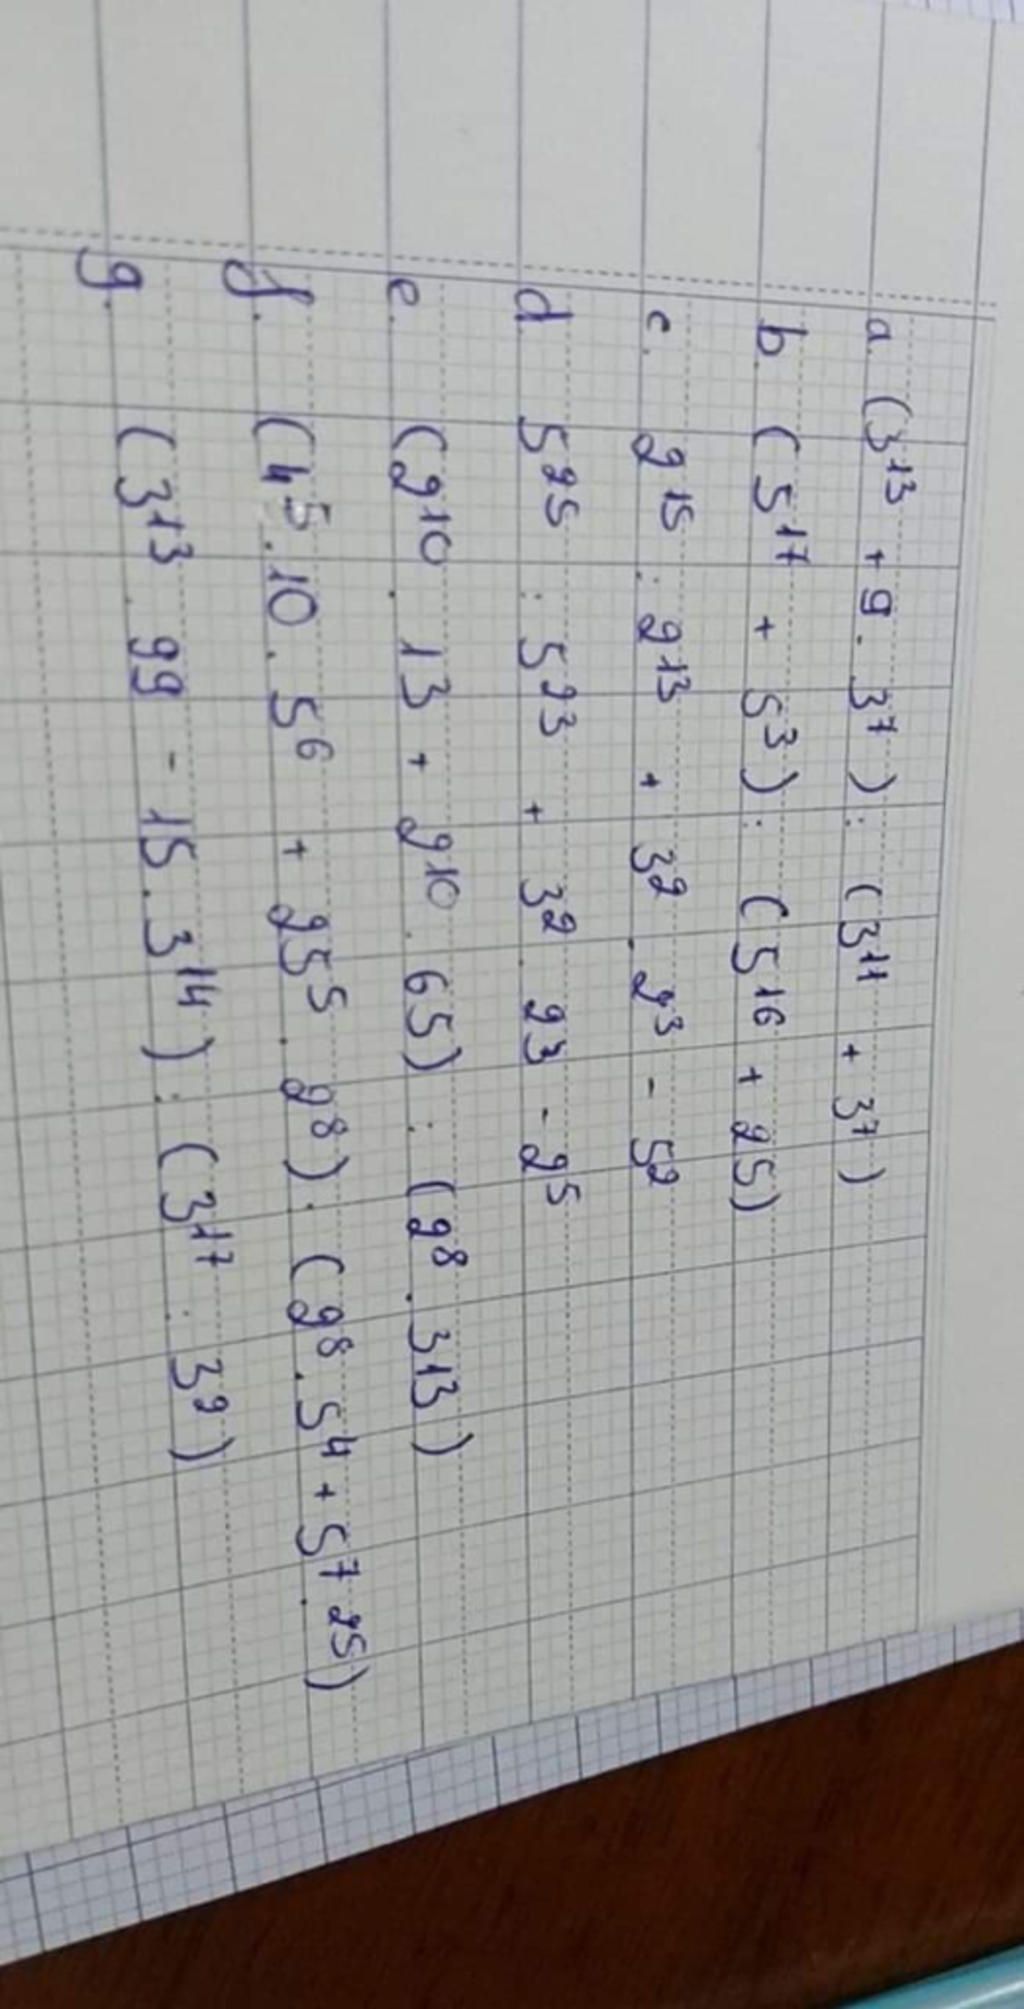 a. (3¹³ + 9 . 3⁷) : (3¹¹ + 3⁷)
b. (5¹⁷ + 5³) : (5¹⁶ + 25)
c. 2¹⁵ : 2¹³ + 3² . 2³ - 5²
d 5²⁵ : 5²³ + 3² . 23 - 2⁵
e. (2¹⁰ . 13 + 2¹⁰ . 65) : (2⁸ . 313)
f. (4⁵ . 10 . 5⁶ + 25⁵ . 2⁸) : (2⁸ . 5⁴ + 5⁷ . 25)
g. (3¹³ . 99 - 15 . 3¹⁴) : (3¹⁷ : 3²)